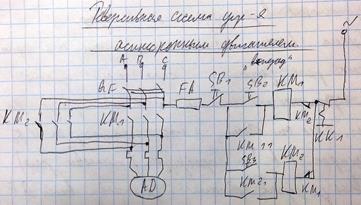 схема упр-я
асинхронным двигателем
"вперёд"
A B C
QF
FA
SB1
SB2
KM1
KM2
KM1
KM2
KK1
KM1 1
SB3
KM2
KM2 1
KM1
AD